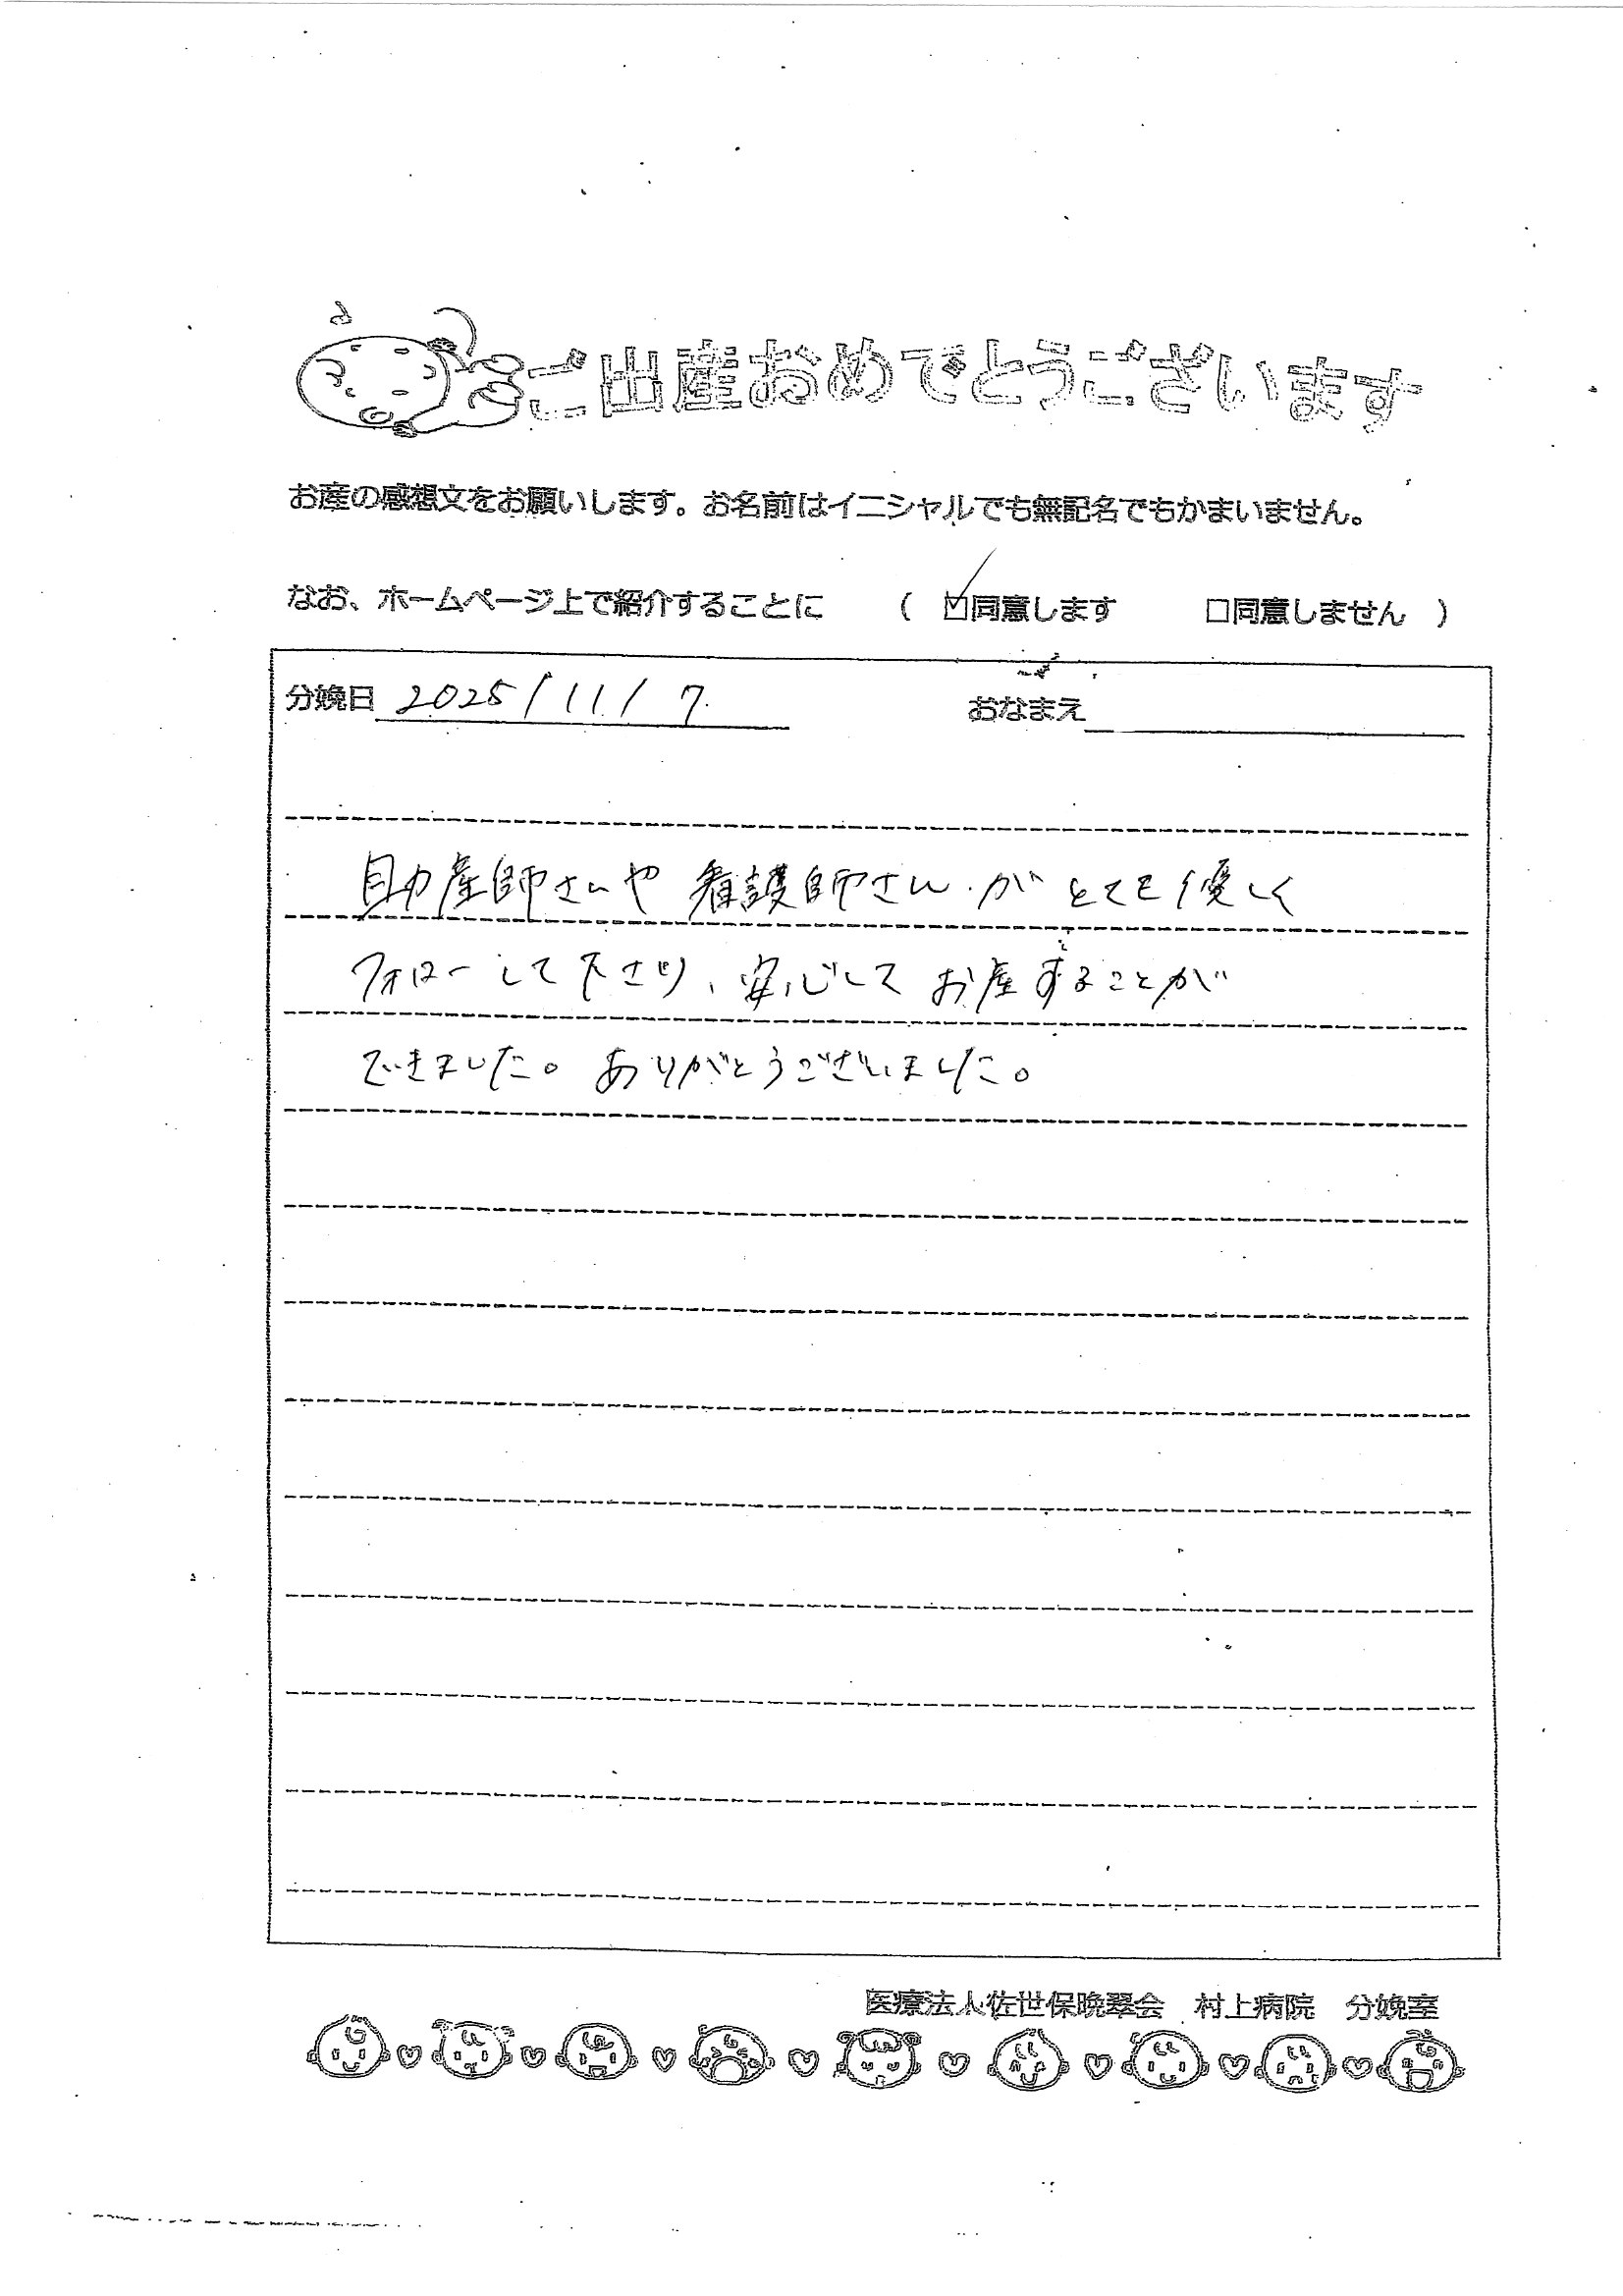 ご出産おめでとうございます
お産の感想文をお願いします。お名前はイニシャルでも無記名でもかまいません。
なお、ホームページ上で紹介することに ( ☑同意します □同意しません )
分娩日 2025/11/7. おなまえ
助産師さんや看護師さんがとても優しく
フォローして下さり、安心してお産することが
できました。ありがとうございました。
医療法人佐世保晩翠会 村上病院 分娩室